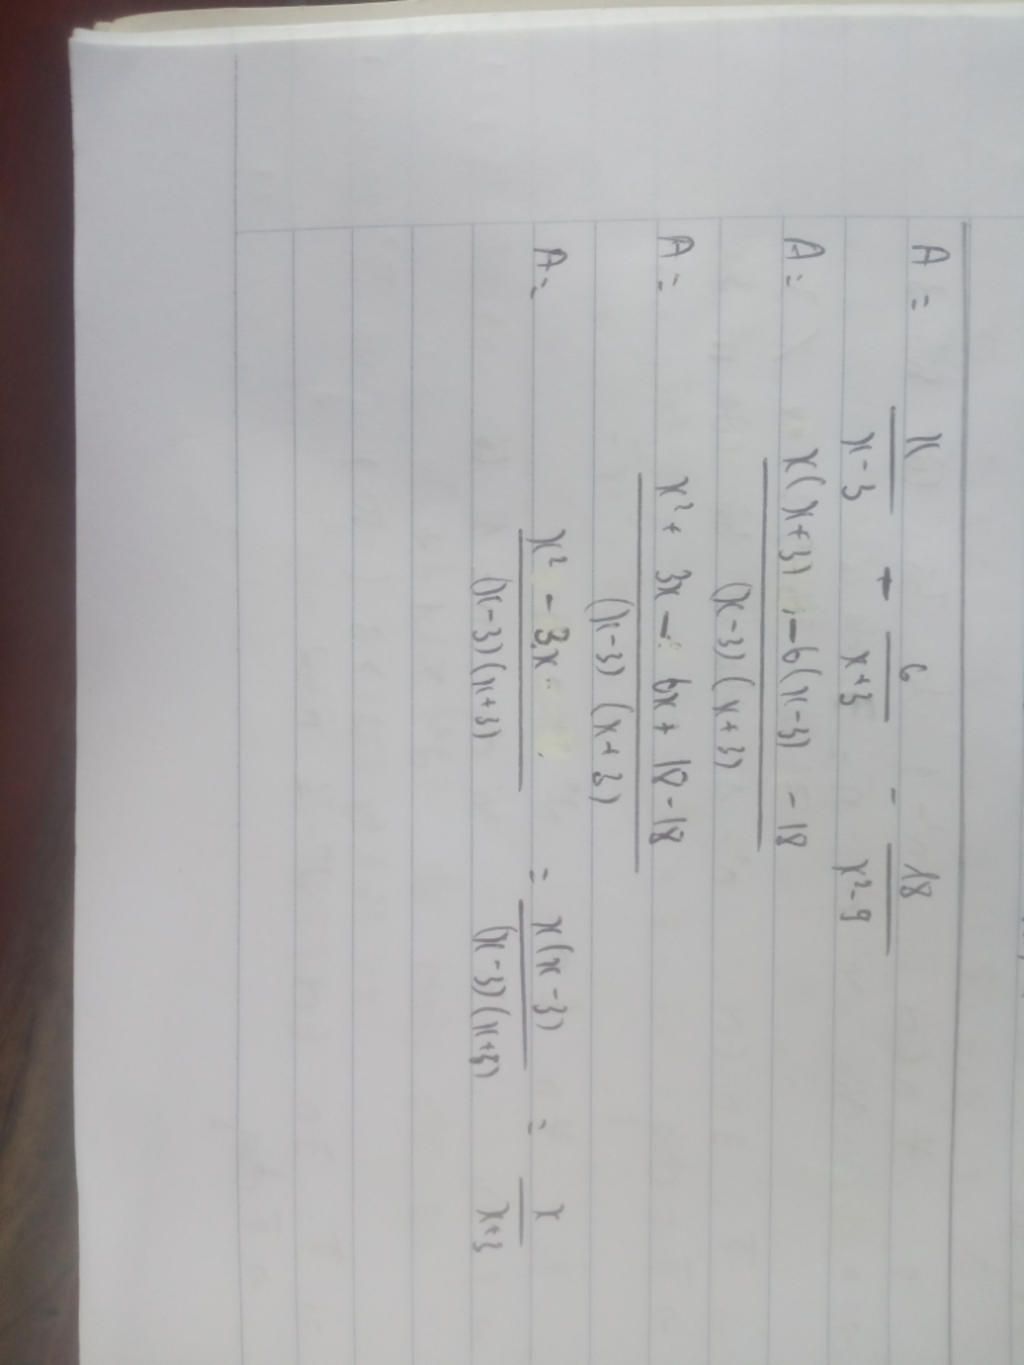 A = x/(x-3) - 6/(x+3) - 18/(x²-9)
A = (x(x+3) - 6(x-3) - 18)/((x-3)(x+3))
A = (x² + 3x - 6x + 18 - 18)/((x-3)(x+3))
A = (x² - 3x)/((x-3)(x+3)) = x(x-3)/((x-3)(x+3)) = x/(x+3)